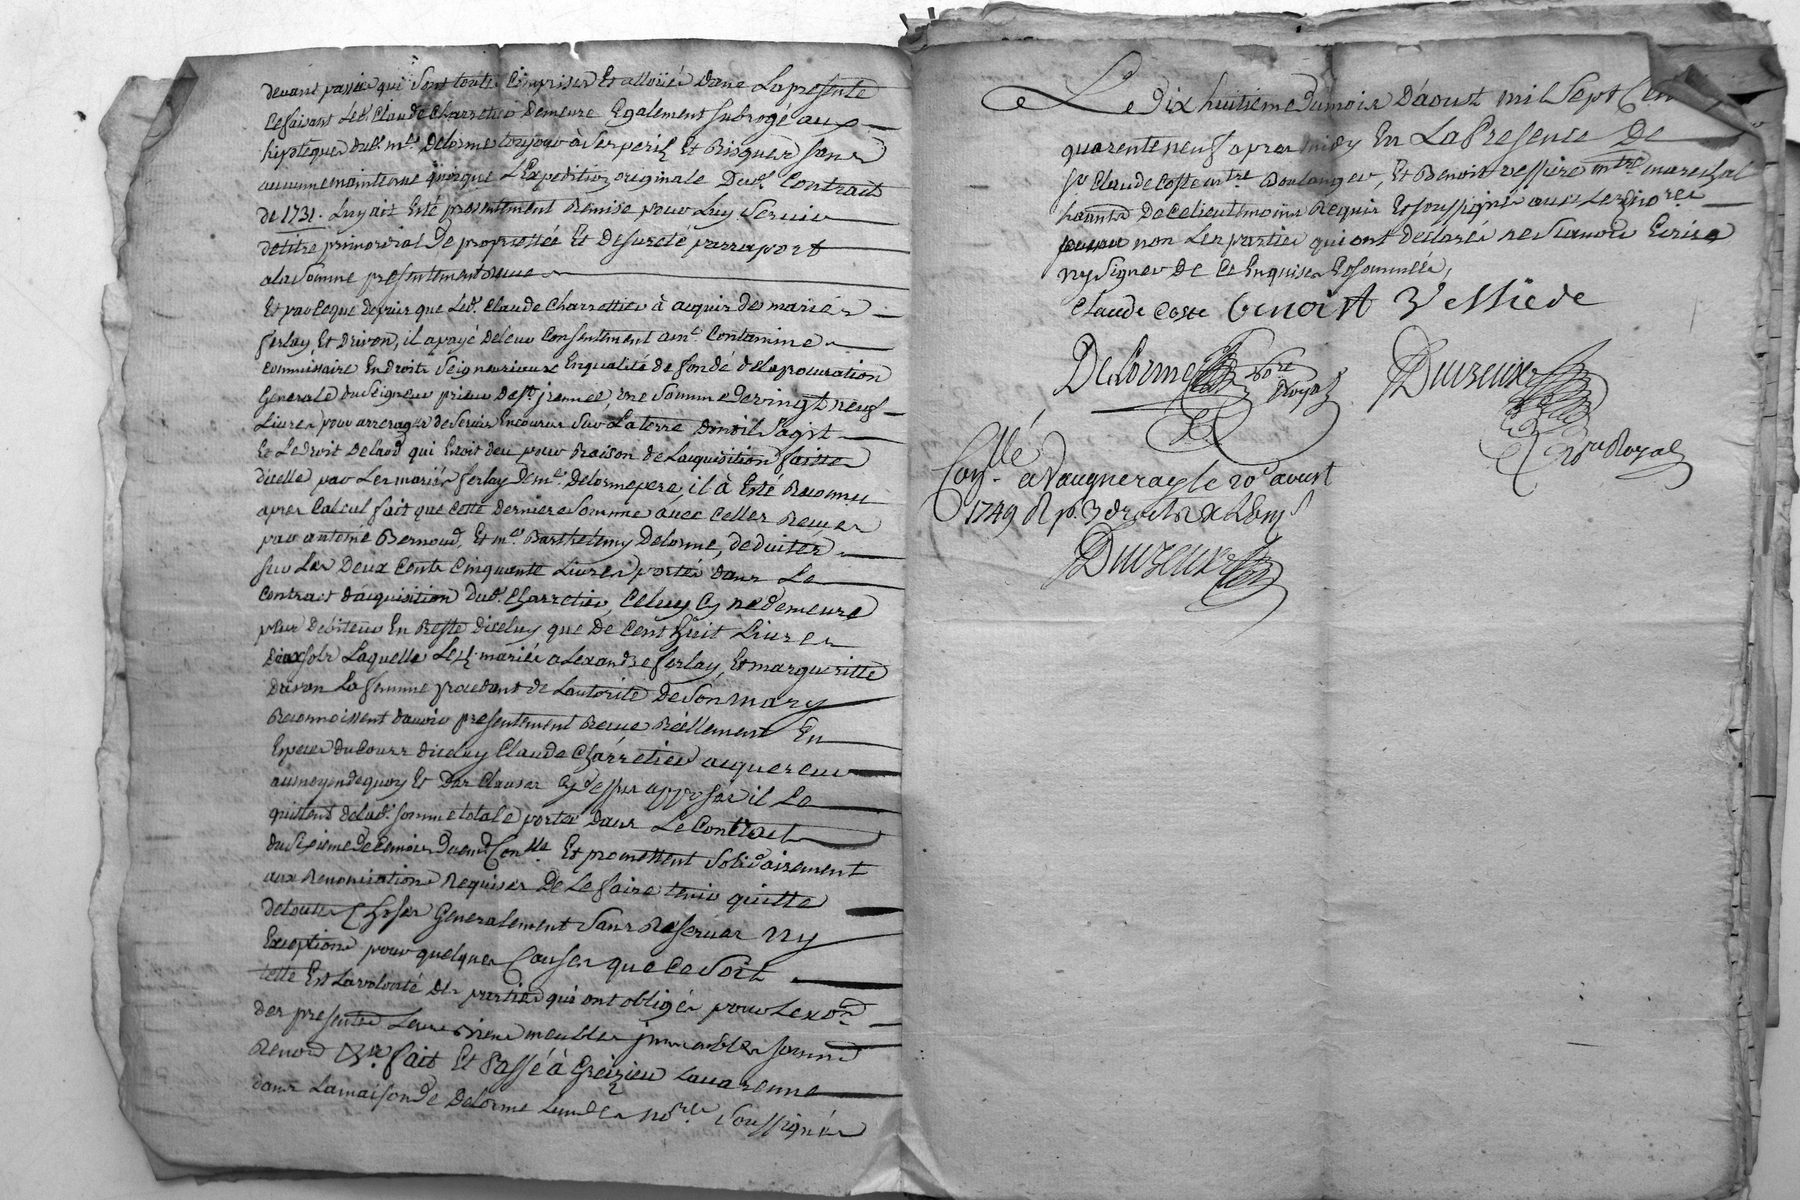 devant passée qui sont toute comprises Et alloüée dans La presente
Ce faisant Led. Claude Charretier Demeure Egalement subrogé aux
hipoteques dud. me. Delorme toujour à Ses peril Et Risques sans
aucune maintenue quoique L'Expedition originale Dud. Contract
de 1731. Luy ait Esté presentement Remise pour Luy Servir
de titre primordial De proprietée Et de sureté par raport
a la Somme presentement recue
Et parce que depuis que Led. Claude Charrettier à acquis des mariés
ferlay Et Drivon, il a payé de Leur Consentement a mr. Contamine
Commissaire En droits Seigneuriaux En qualité de fondé de la procuration
Generale du Seigneur prieur de St. jrennée, une Somme de vingt neuf
Livres pour arrerages de Servis Encourus Sur La terre dont il S'agit
Et Le droit De Laod qui Etoit deu pour Raison de L'acquisition faitte
d'icelle par Les mariés ferlay De me. Delorme pere, il à Esté Reconnu
apres Calcul fait que Cette derniere Somme avec Celles Recues
par antoine Bernoud, Et me. Barthelemy Delorme, deduites
sur Les Deux Cents Cinquante Livres portés dans Le
Contract d'acquisition dud. Charretier, Celuy Cy ne demeure
plus Debiteur En Reste d'iceluy que De Cent huit Livres
Deux sols Laquelle Les d. mariés alexandre ferlay, Et margueritte
Drivon La femme procedant de L'autorité De Son mary
Reconnoissent d'avoir presentement Recue Réellement En
Especes du Cours d'iceluy Claude Charretier acquereur
au moyen de quoy Et Des Clauses Cy dessus apposés il Le
quittent de lad. somme totale portée dans Le Contract
du Sixieme de Ce mois Duement Conllé. Et promettent Solidairement
aux Renonciations Requises De Le faire tenir quitte
de toutes Choses Generalement Sans Reserves ny
Exceptions pour quelques Causes que Ce Soit
telle Est La volonté des parties qui ont obligés pour L'exon.
des presentes Leurs biens meubles immeubles soumis
Renond &a. fait Et Passé à Greizieu Lavarenne
dans La maison de Delorme L'un des nores. Soussignés
Le dix huitieme du mois D'aoust mil Sept Cent
quarente neuf apres midy En La Presence De
sr. Claude Coste mtre. Boulanger, Et Benoit vessiere mtre. marechal
habitants De Ce lieu temoins Requis Et soussignés avec Lesd. nores
non Les parties qui ont declarés ne Scavoir Ecrire
ny Signer De Ce Enquises Et sommées,
Claude Coste Benoist Vessiede
Delorme Nore Royal Durieux
Nre Royal
Conllé. a Vaugneray le 20e aoust
1749 R p. 3 droits
Durieux